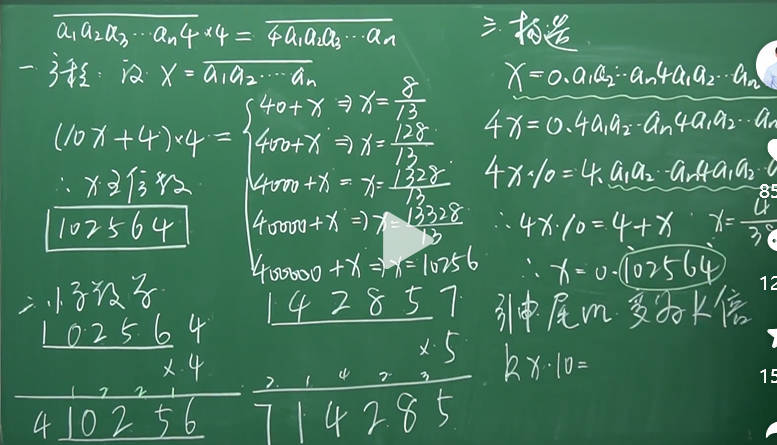 a₁a₂a₃…aₙ4×4 = 4a₁a₂a₃…aₙ
一 方程: 设 X = a₁a₂…aₙ
(10X+4)×4 =
40+X ⇒ X = 8/13
400+X ⇒ X = 128/13
4000+X = X = 1328/13
40000+X ⇒ X = 13328/13
400000+X ⇒ X = 10256
∴ X 是倍数
102564
二
102564
×4
1 2 2 1
410256
142857
×5
2 1 4 2 3
714285
三 构造
X = 0.a₁a₂…aₙ4a₁a₂…aₙ
4X = 0.4a₁a₂…aₙ4a₁a₂…aₙ
4X·10 = 4.a₁a₂…aₙ4a₁a₂…a
∴ 4X·10 = 4+X X = 4/3
∴ X = 0.102564
引申 尾m 变为K倍
kX·10 =
85
12
15